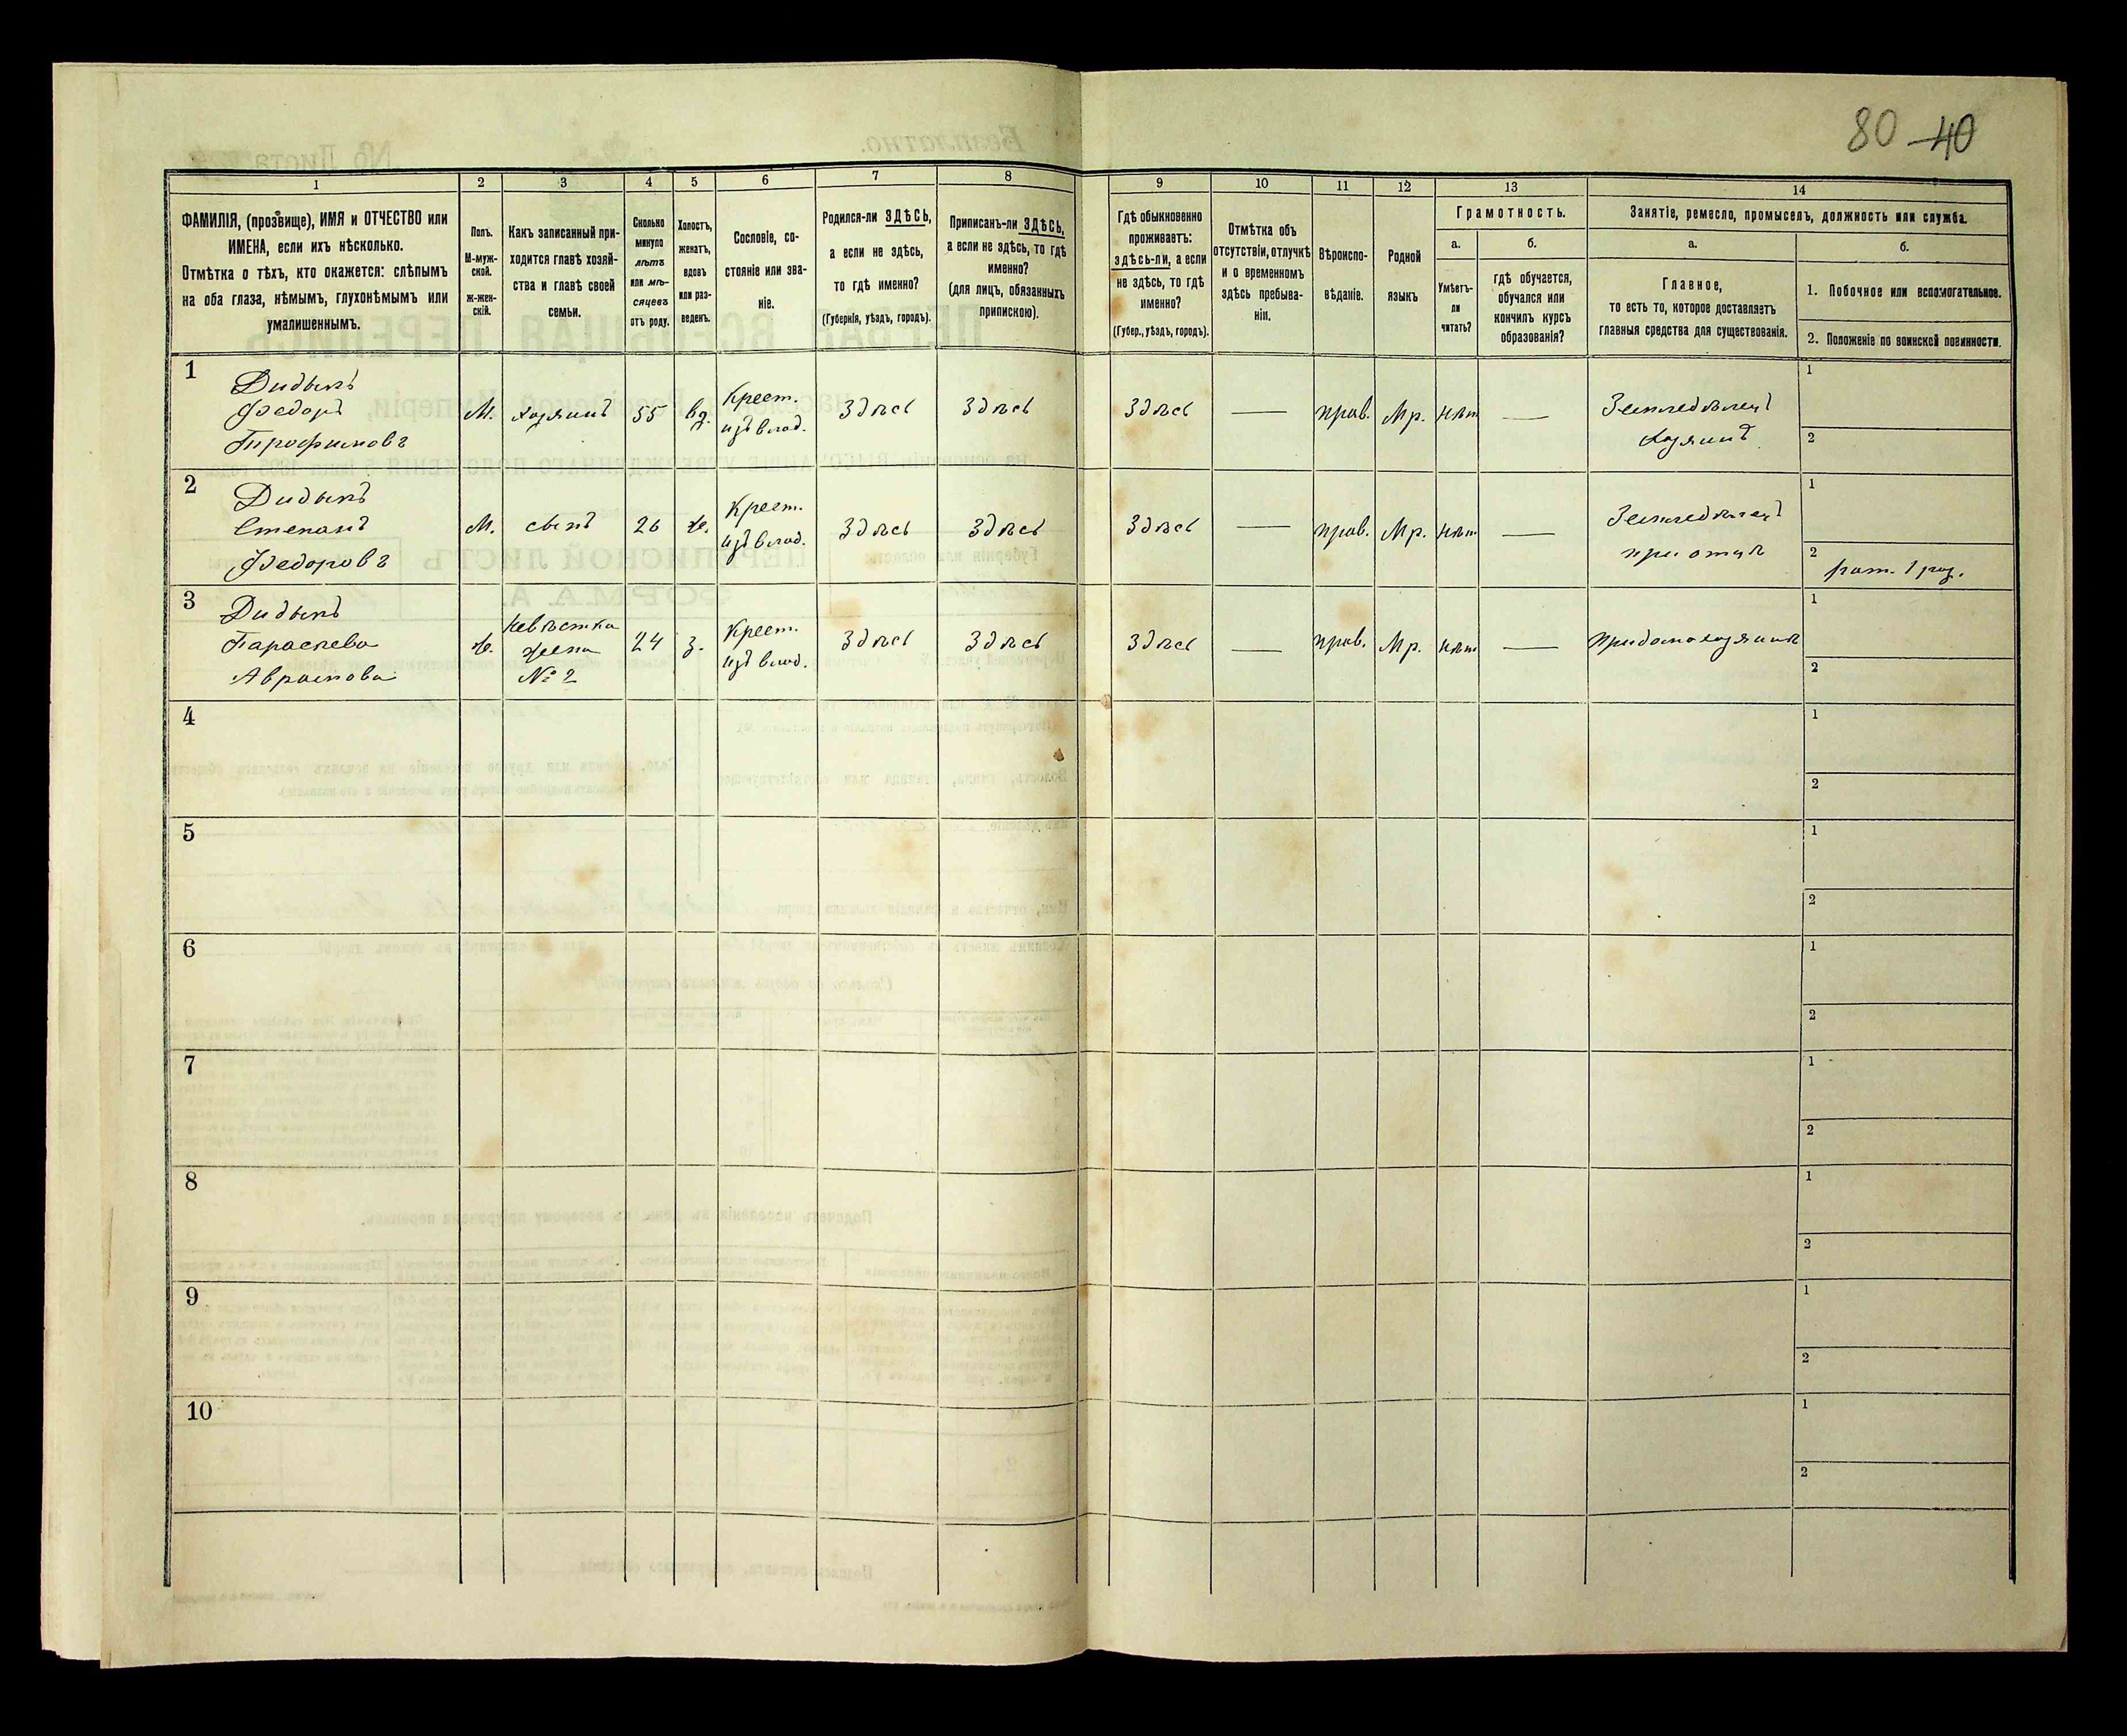 80 40
1 2 3 4 5 6 7 8 9 10 11 12 13 14
ФАМИЛІЯ, (прозвище), ИМЯ и ОТЧЕСТВО или
ИМЕНА, если ихъ нѣсколько.
Отмѣтка о тѣхъ, кто окажется: слѣпымъ
на оба глаза, нѣмымъ, глухонѣмымъ или
умалишеннымъ.
Полъ.
М-муж-
ской.
ж-жен-
скій.
Какъ записанный при-
ходится главѣ хозяй-
ства и главѣ своей
семьи.
Сколько
минуло
лѣтъ
или мѣ-
сяцевъ
отъ роду.
Холостъ,
женатъ,
вдовъ
или раз-
веденъ.
Сословіе, со-
стояніе или зва-
ніе.
Родился-ли ЗДѢСЬ,
а если не здѣсь,
то гдѣ именно?
(Губернія, уѣздъ, городъ).
Приписанъ-ли ЗДѢСЬ,
а если не здѣсь, то гдѣ
именно?
(для лицъ, обязанныхъ
припискою).
Гдѣ обыкновенно
проживаетъ:
здѣсь-ли, а если
не здѣсь, то гдѣ
именно?
(Губер., уѣздъ, городъ).
Отмѣтка объ
отсутствіи, отлучкѣ
и о временномъ
здѣсь пребыва-
ніи.
Вѣроиспо-
вѣданіе.
Родной
языкъ
Грамотность.
а.
Умѣетъ-
ли
читать?
б.
гдѣ обучается,
обучался или
кончилъ курсъ
образованія?
Занятіе, ремесло, промыселъ, должность или служба.
а.
Главное,
то есть то, которое доставляетъ
главныя средства для существованія.
б.
1. Побочное или вспомогательное.
2. Положеніе по воинской повинности.
1
Дидыкъ
Федоръ
Трофимовъ
М.
хозяинъ
55
вд.
Крест.
изъ влад.
Здѣсь
Здѣсь
Здѣсь
—
прав.
Мр.
нѣт
—
Земледѣлецъ
хозяинъ
1
2
2
Дидыкъ
Степанъ
Федоровъ
М.
сынъ
26
ж.
Крест.
изъ влад.
Здѣсь
Здѣсь
Здѣсь
—
прав.
Мр.
нѣт
—
Земледѣлецъ
при отцѣ
1
2
рат. 1 раз.
3
Дидыкъ
Параскева
Авраамова
ж.
невѣстка
жена
№ 2
24
з.
Крест.
изъ влад.
Здѣсь
Здѣсь
Здѣсь
—
прав.
Мр.
нѣт
—
При домохозяинѣ
1
2
4
1
2
5
1
2
6
1
2
7
1
2
8
1
2
9
1
2
10
1
2